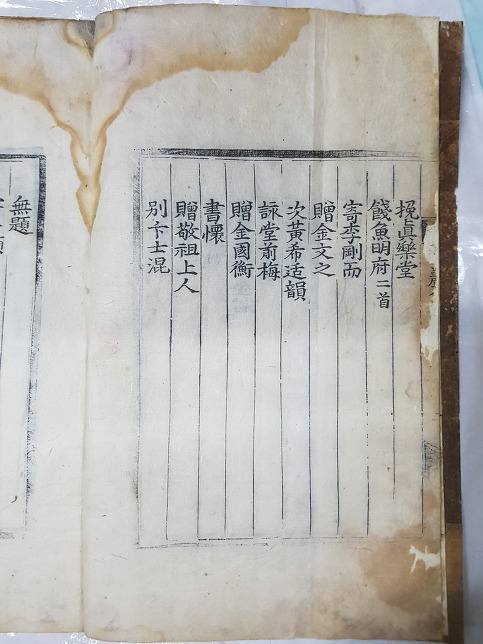 挽眞樂堂
餞魚明府二首
寄李剛而
贈金文之
次黃希适韻
詠堂前梅
贈金國衡
書懷
贈敬祖上人
別卞士混
無題